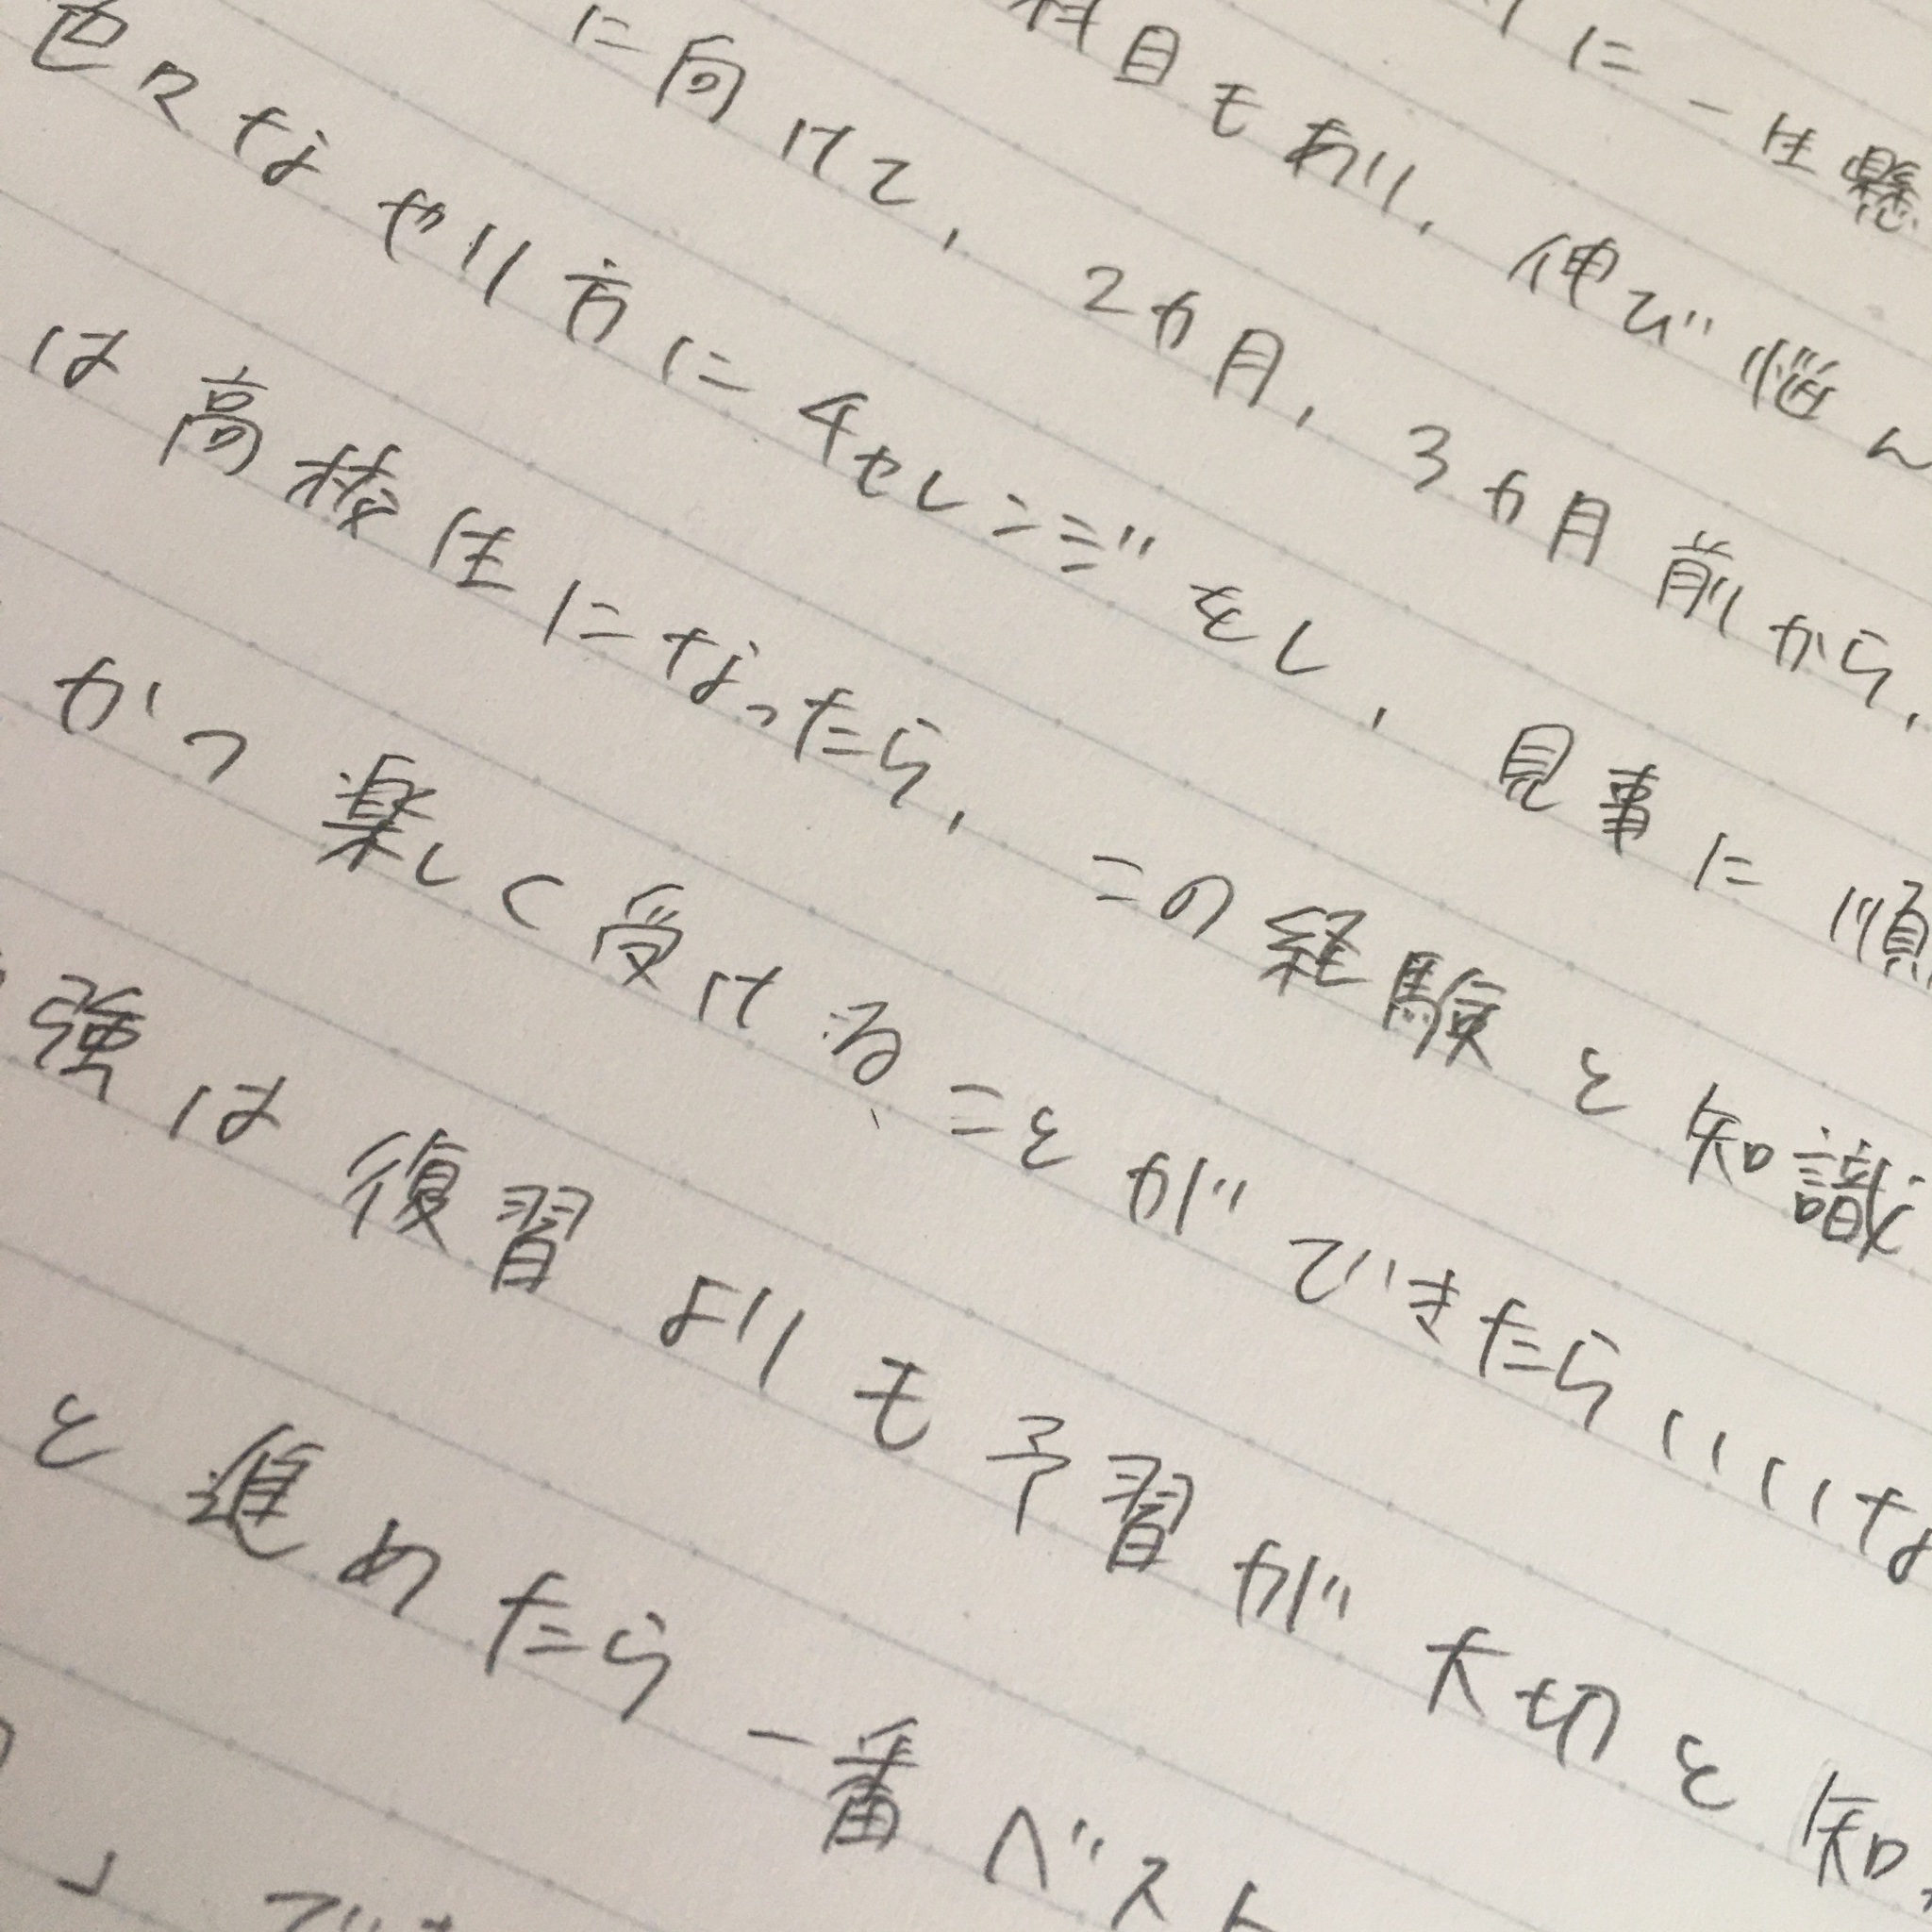 に一生懸
科目もあり,伸び悩ん
に向けて,2カ月,3カ月前から,
色々なやり方にチャレンジをし,見事に順
は高校生になったら,この経験と知識
かつ楽しく受けることができたらいいな
強は復習よりも予習が大切と知
と進めたら一番ベスト